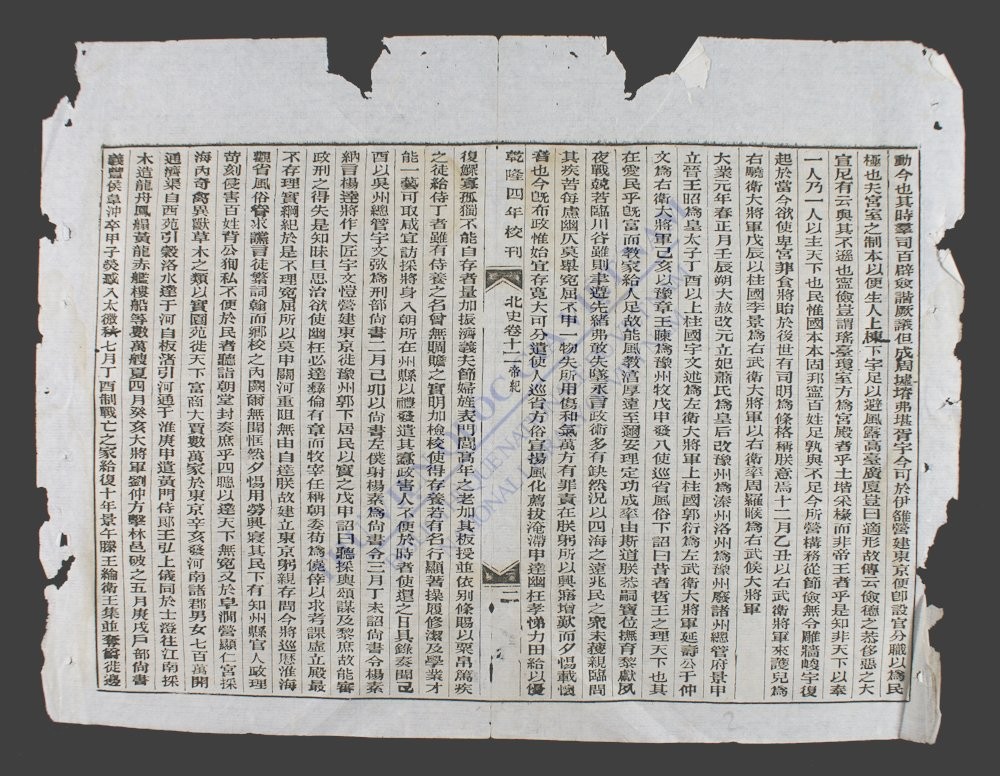 動今也其時羣司百辟僉諧厥議但成周墟塉弗堪胥宇今可於伊雒營建東京便卽設官分職以爲民
極也夫宮室之制本以便生人上棟下宇足以避風露高臺廣廈豈曰適形故傳云儉德之恭侈惡之大
宣尼有云與其不遜也寧儉豈謂瑤臺瓊室方爲宮殿者乎土堦采椽而非帝王者乎是知非天下以奉
一人乃一人以主天下也民惟國本本固邦寧百姓足孰與不足今所營構務從節儉無令雕牆峻宇復
起於當今欲使卑宮菲食將貽於後世有司明爲條格稱朕意焉十二月乙丑以右武衛將軍來護兒爲
右驍衛大將軍戊辰以柱國李景爲右武衛大將軍以右衛率周羅睺爲右武候大將軍
大業元年春正月壬辰朔大赦改元立妃蕭氏爲皇后改豫州爲溱州洛州爲豫州廢諸州總管府景申
立晉王昭爲皇太子丁酉以上柱國宇文述爲左衛大將軍上柱國郭衍爲左武衛大將軍延壽公于仲
文爲右衛大將軍己亥以豫章王暕爲豫州牧戊申發八使巡省風俗下詔曰昔者哲王之理天下也其
在愛民乎旣富而敎家給人足故能風敎淯厚遠至邇安理定功成率由斯道朕恭嗣寶位撫育黎獻夙
夜戰兢若臨川谷雖則聿遵先緒弗敢失墜永言政術多有缺然況以四海之遠兆民之衆未獲親臨問
其疾苦每慮幽仄莫舉寃屈不申一物失所用傷和氣萬方有罪責在朕躬所以興寤增歎而夕惕載懷
者也今旣布政惟始宜存寬大可分遣使人巡省方俗宣揚風化薦拔淹滯申達幽枉孝悌力田給以優
乾隆四年校刊
北史卷十二 帝紀
二
復鰥寡孤獨不能自存者量加振濟義夫節婦旌表門閭高年之老加其板授並依別條賜以粟帛篤疾
之徒給侍丁者雖有侍養之名曾無賙贍之實明加檢校使得存養若有名行顯著操履修潔及學業才
能一藝可取咸宜訪採將身入朝所在州縣以禮發遣其蠹政害人不便於時者使還之日具錄奏聞己
酉以吳州總管宇文㢸爲刑部尚書二月己卯以尚書左僕射楊素爲尚書令三月丁未詔尚書令楊素
納言楊達將作大匠宇文愷營建東京徙豫州郭下居民以實之戊申詔曰聽採輿頌謀及黎庶故能審
政刑之得失是知昧旦思治欲使幽枉必達彝倫有章而牧宰任稱朝委苟爲僥倖以求考課虛立殿最
不存理實綱紀於是不理寃屈所以莫申關河重阻無由自達朕故建立東京躬親存問今將巡厯淮海
觀省風俗眷求讜言徒繁詞翰而鄉校之內闕爾無聞恇然夕惕用勞興寢其民下有知州縣官人政理
苛刻侵害百姓背公徇私不便於民者聽詣朝堂封奏庶乎四聰以達天下無寃又於阜澗營顯仁宮採
海內奇禽異獸草木之類以實園苑徙天下富商大賈數萬家於東京辛亥發河南諸郡男女七百萬開
通濟渠自西苑引穀洛水達于河自板渚引河通于淮庚申遣黃門侍郎王弘上儀同於士澄往江南採
木造龍舟鳳䑽黃龍赤艦樓船等數萬艘夏四月癸亥大將軍劉仲方擊林邑破之五月庚戌戶部尚書
義豐侯韋沖卒甲子熒惑入太微秋七月丁酉制戰亡之家給復十年景午滕王綸衛王集並奪爵徙邊